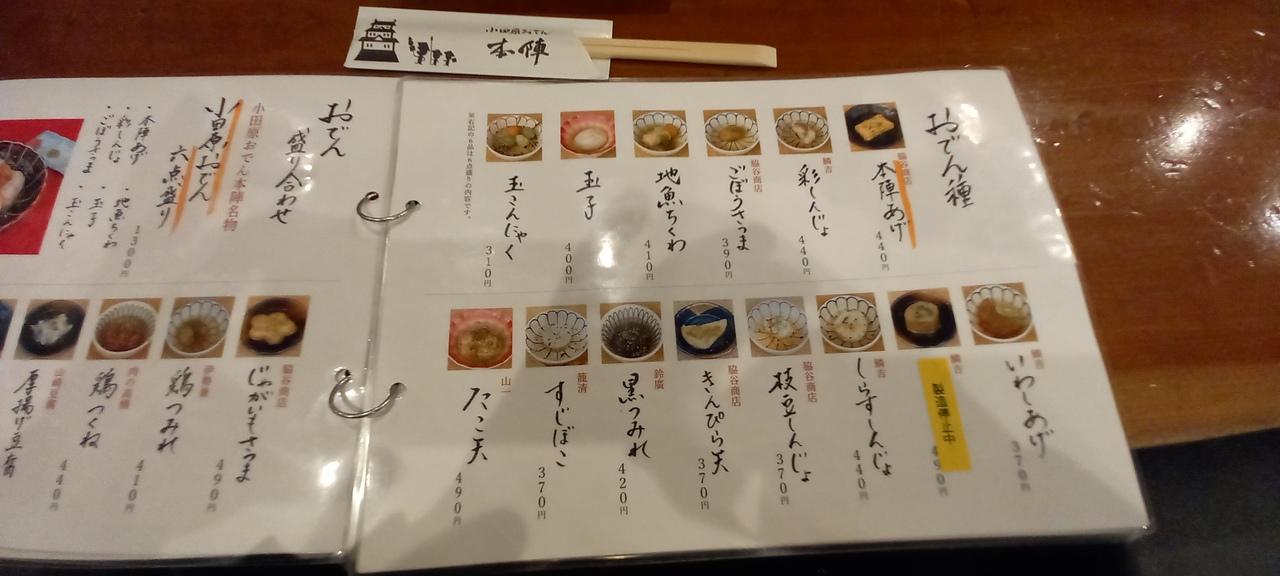 小田原おでん
本陣
おでん種
脇谷商店
本陣あげ
440円
鱗吉
彩しんじょ
440円
脇谷商店
ごぼうさつま
390円
地魚ちくわ
410円
玉子
400円
玉こんにゃく
310円
※右記の6品は6点盛りの内容です。
鱗吉
いわしあげ
370円
鱗吉
製造停止中
490円
鱗吉
しらすしんじょ
440円
脇谷商店
枝豆しんじょ
370円
脇谷商店
きんぴら天
370円
鈴廣
黒つみれ
420円
籠清
すじぼこ
370円
山一
たこ天
490円
おでん
盛り合わせ
小田原おでん本陣名物
小田原おでん
六点盛り
1300円
・本陣あげ
・彩しんじょ
・ごぼうさつま
・地魚ちくわ
・玉子
・玉こんにゃく
脇谷商店
じゃがいもさつま
490円
伊勢兼
鶏つみれ
410円
肉の高橋
鶏つくね
440円
山崎豆腐
厚揚げ豆腐